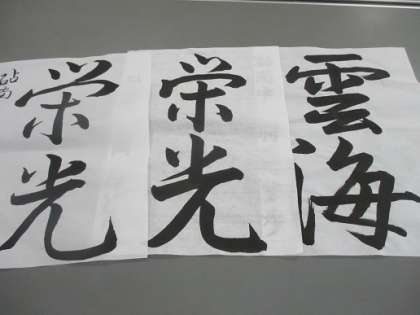 雲海
栄光
栄光